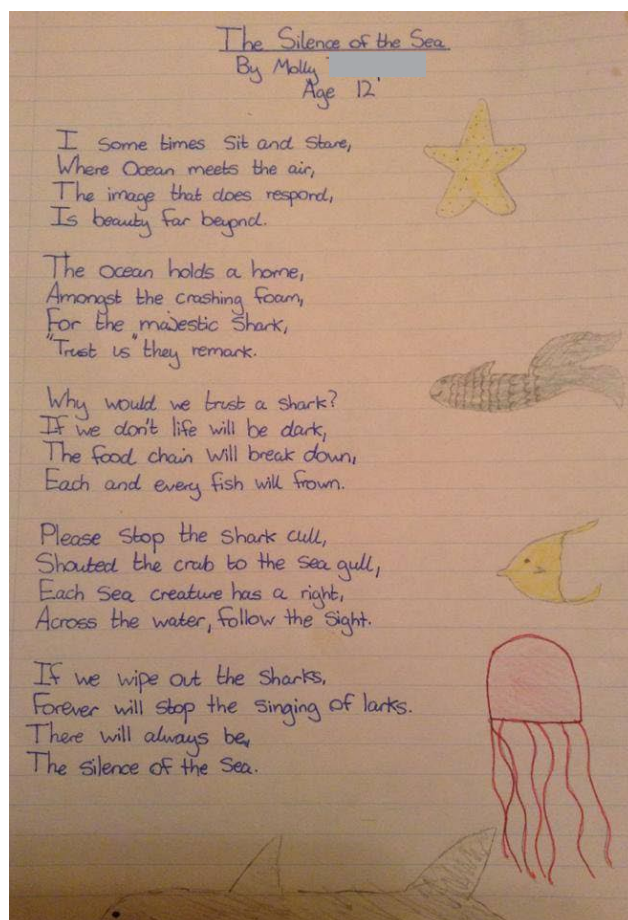 The Silence of the Sea
By Molly
Age 12
I some times sit and stare,
Where Ocean meets the air,
The image that does respond,
Is beauty far beyond.
The ocean holds a home,
Amongst the crashing foam,
For the majestic Shark,
"Trust us" they remark.
Why would we trust a shark?
If we don't life will be dark,
The food chain will break down,
Each and every fish will frown.
Please stop the shark cull,
Shouted the crab to the sea gull,
Each sea creature has a right,
Across the water, follow the sight.
If we wipe out the sharks,
Forever will stop the singing of larks.
There will always be,
The silence of the Sea.